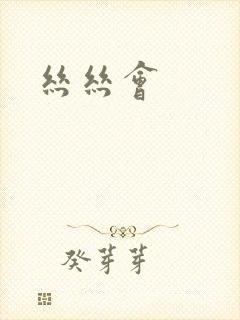 絲絲會
癸芽芽